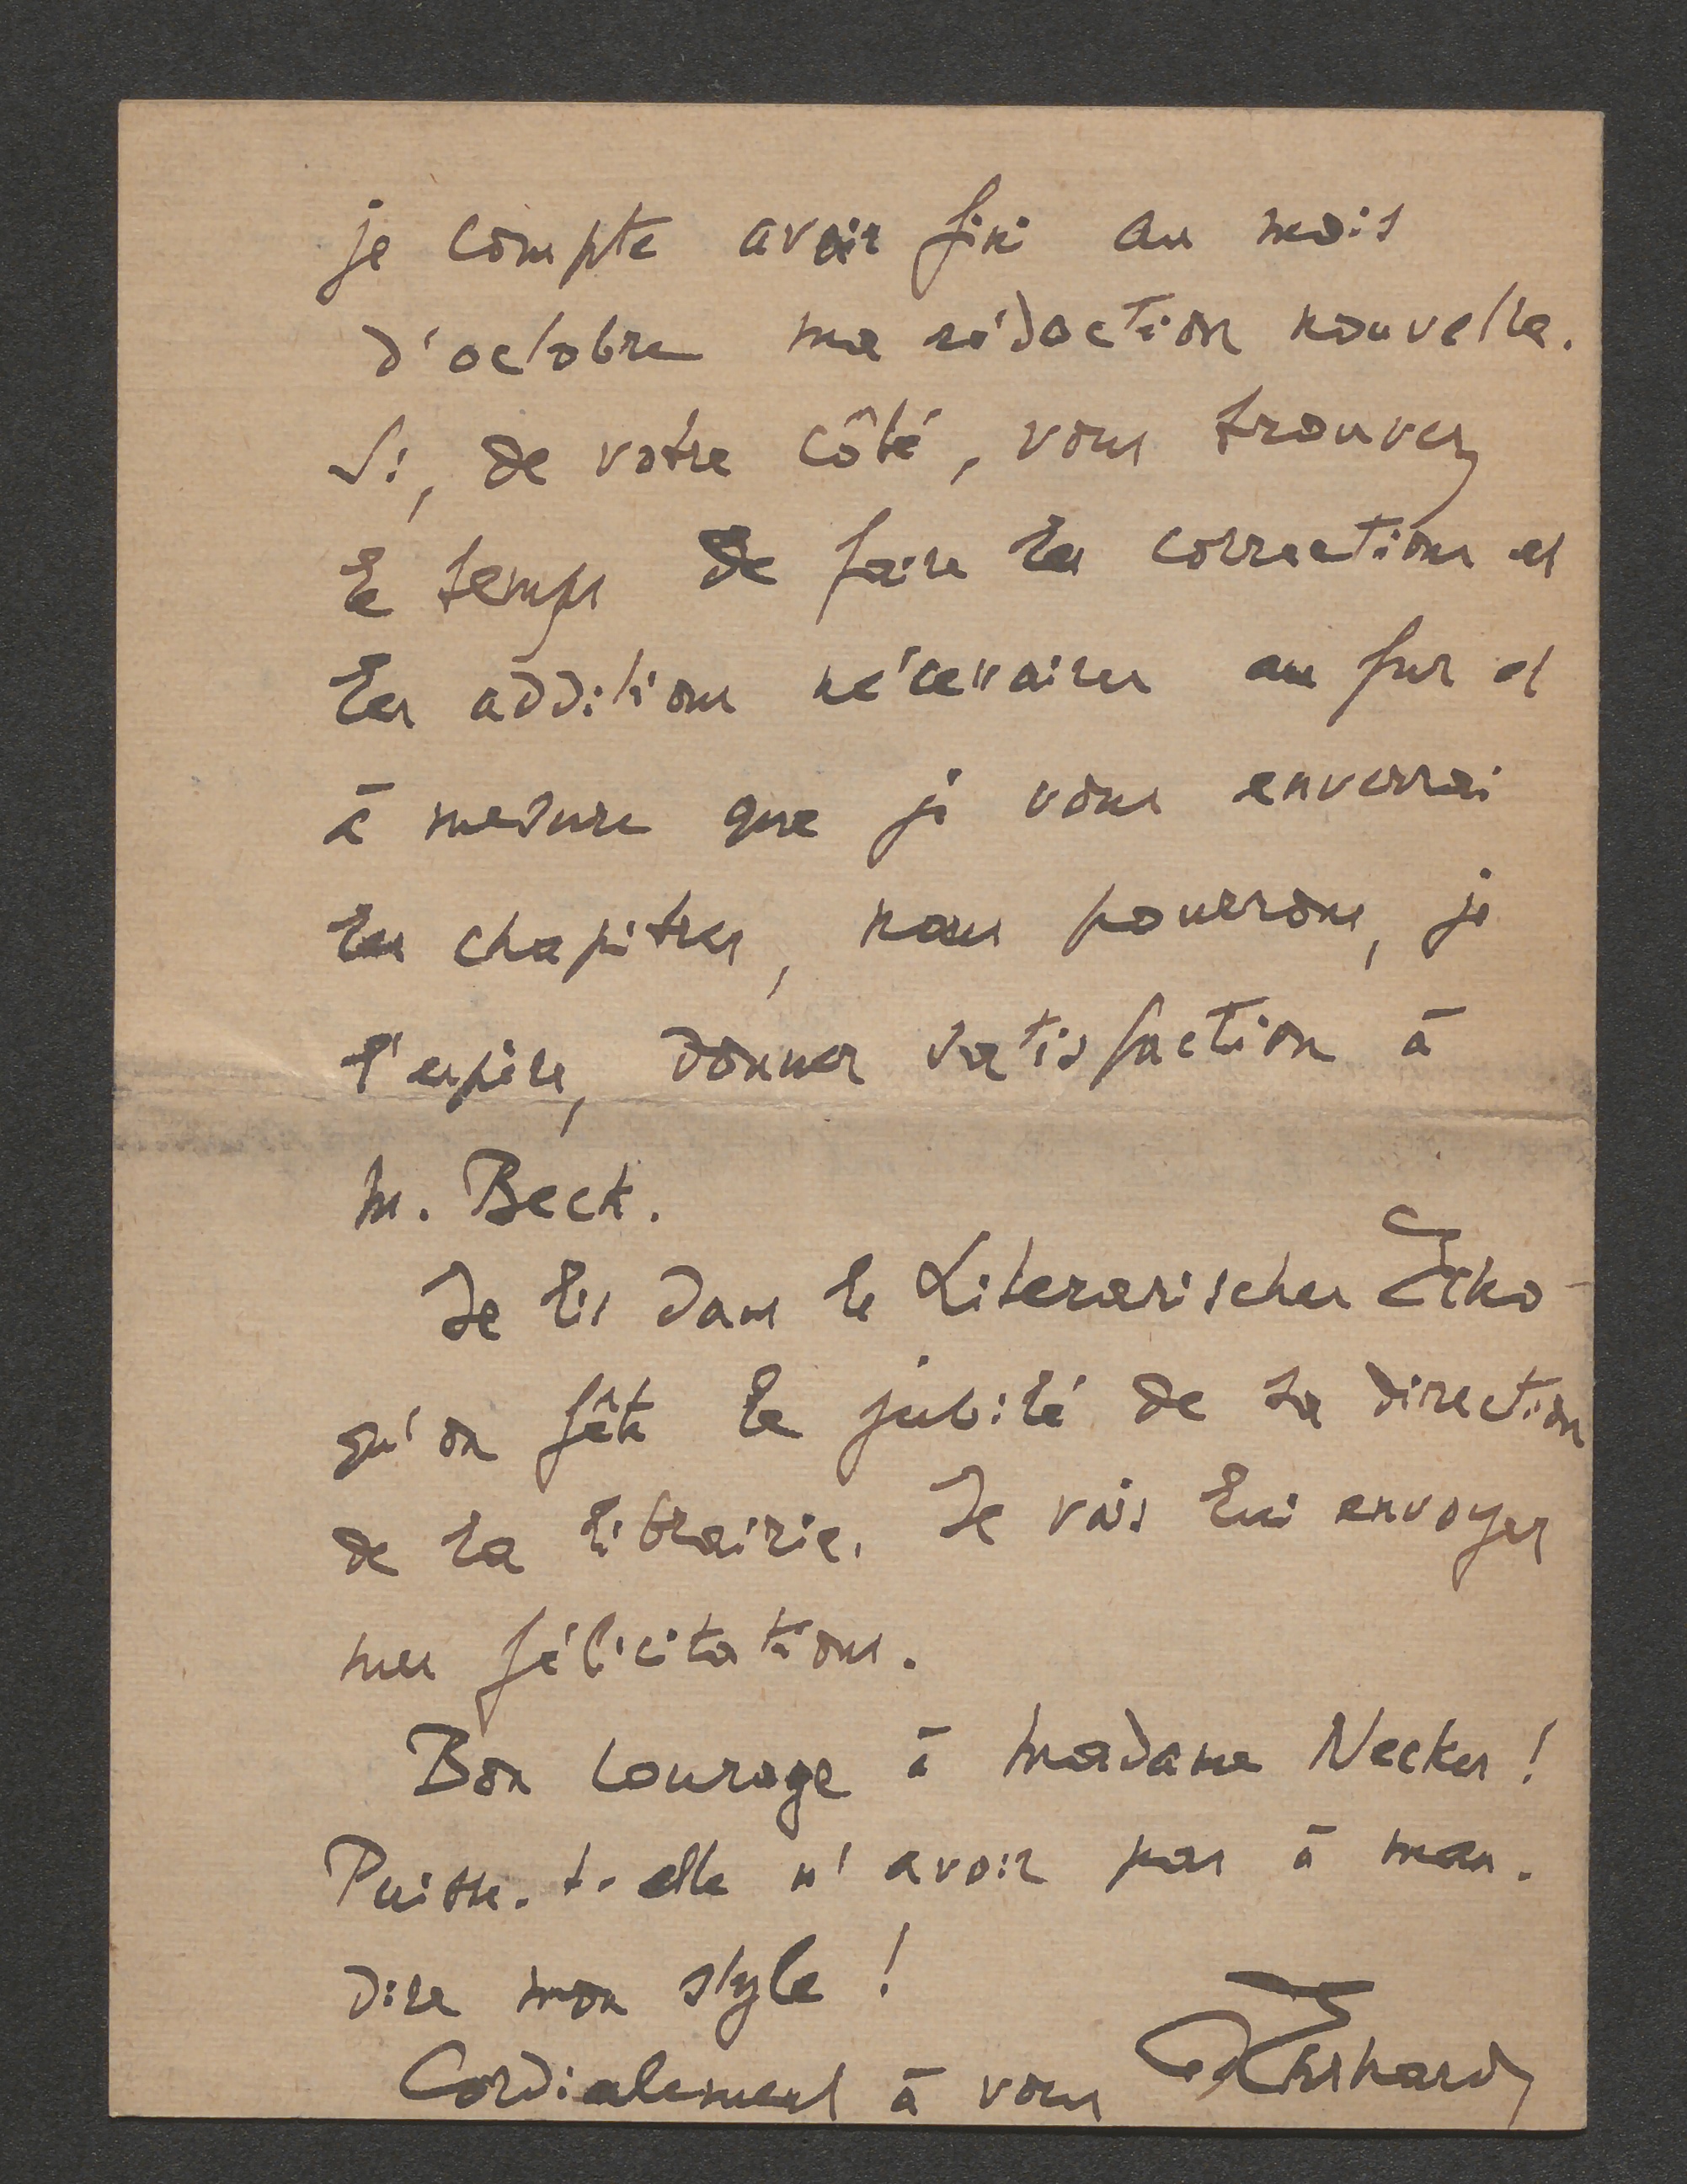 je compte avoir fini au mois
d'octobre ma rédaction nouvelle.
Si, de votre côté, vous trouvez
le temps de faire les corrections et
les additions nécessaires au fur et
à mesure que je vous enverrai
les chapitres, nous pourrons, je
l'espère, donner satisfaction à
M. Beck.
Je lis dans le Literarischer Echo
qu'on fête le jubilé de sa direction
de la librairie. Je vais lui envoyer
mes félicitations.
Bon courage à Madame Necker!
Puisse-t-elle n'avoir pas à mau-
dire mon style!
Cordialement à vous Ehrhard